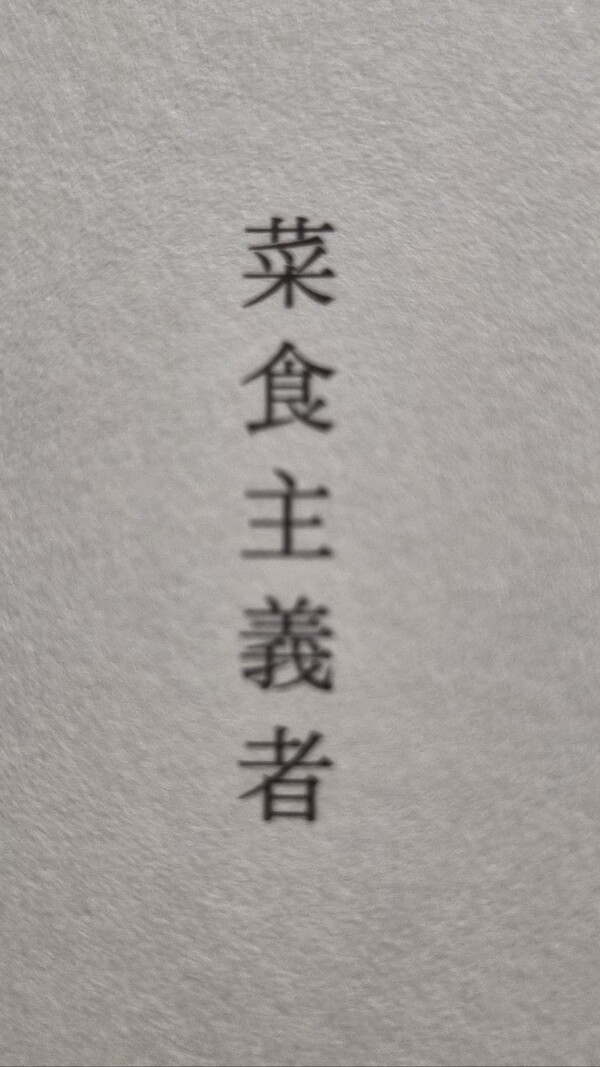 菜食主義者